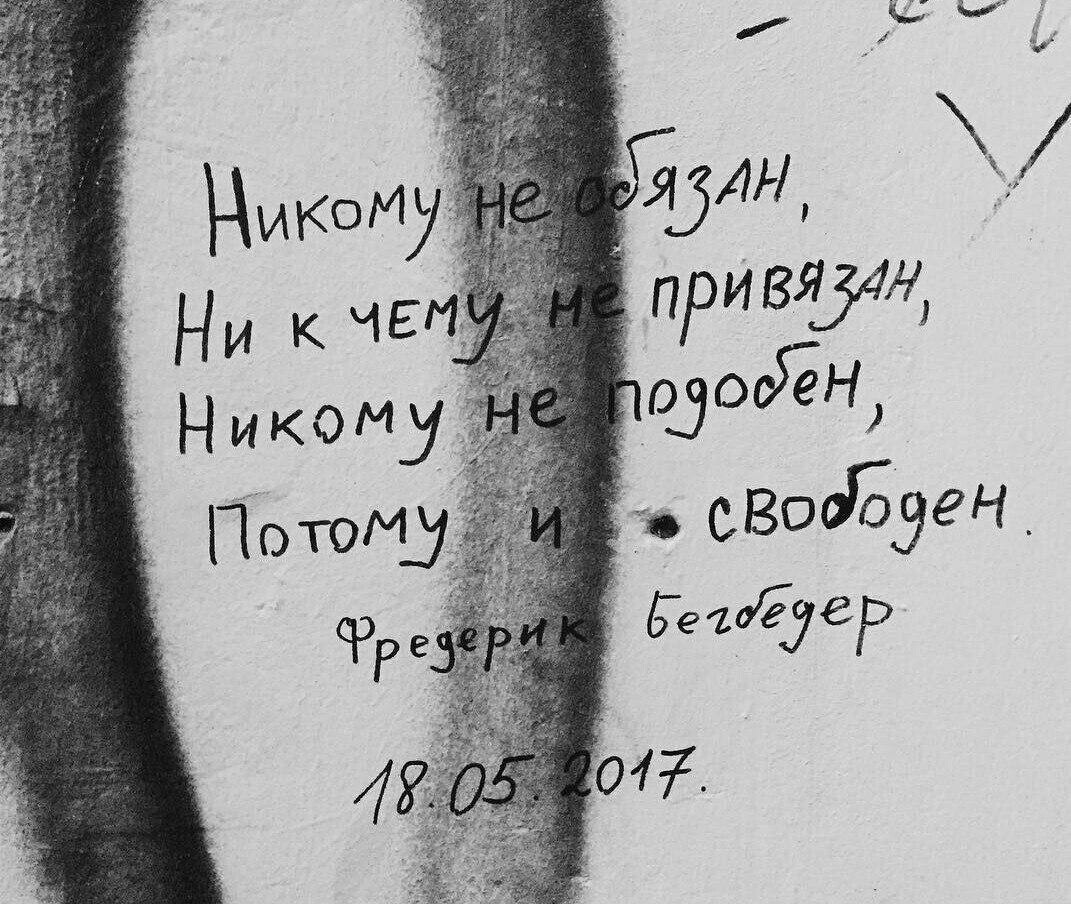 Никому не обязан,
Ни к чему не привязан,
Никому не подобен,
Потому и свободен.
Фредерик Бегбедер
18.05.2017.